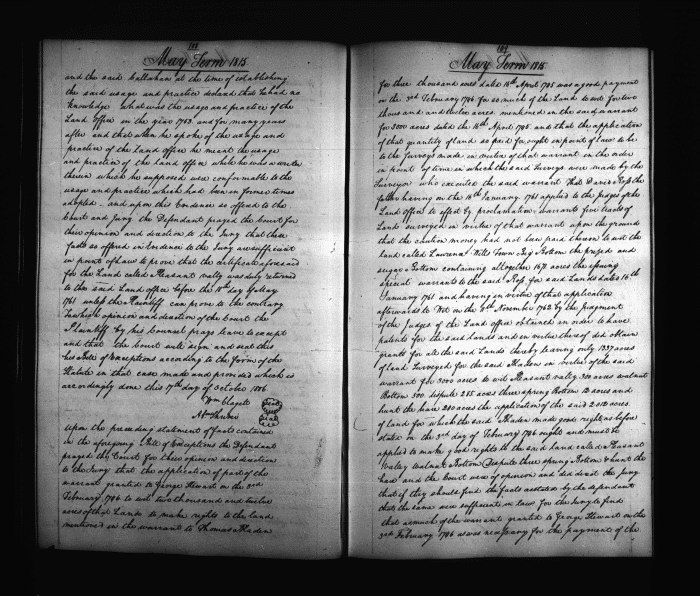 May Term 1815
and the said Callahan at the time of establishing
the said usage and practice declared that he had no
knowledge what was the usage and practice of the
Land Office in the year 1753. and for many years
after and that when he spoke of the usage and
practice of the Land office he meant the usage
and practice of the land office while he was a writer
therein which he supposed were conformable to the
usage and practice which had been in former times
adopted. and upon this Evidence so offered to the
Court and Jury the Defendant prayed the Court for
their opinion and direction to the Jury that these
facts so offered in Evidence to the Jury are sufficient
in point of Law to prove that the certificate aforesaid
for the Land called Pleasant vally was duly returned
to the said Land office before the 11th day of May
1761 unless the Plaintiff can prove to the contrary
to which opinion and direction of the Court the
Plaintiff by his Counsel prays leave to except
and that the Court will sign and seal this
his Bill of Exceptions according to the form of the
Statute in that case made and provided which is
accordingly done this 17th day of October 1806
Wm Clagett
A Shriver
Upon the preceding statement of facts contained
in the aforegoing Bill of Exceptions the Defendant
prayed the Court for their opinion and direction
to the Jury that the application of part of the
warrant granted to George Stewart on the 3rd
February 1786 to wit two thousand and twelve
acres of that Lands to make rights to the land
mentioned in the warrant to Thomas Maden
May Term 1815
for three thousand acres dated 16th April 1785 was a good payment
on the 3rd February 1786 for so much of the Land to wit for two
thousand and twelve acres mentioned in the said warrant
for 3000 acres dated the 16th April 1785. and that the application
of that quantity of land so paid for ought in point of law to be
to the Surveys made in virtue of that warrant in the order
in point of time in which the said Surveys were made by the
Surveyor who executed the said warrant That David Ross the
father having on the 16th January 1761 applied to the Judges of the
Land Office to affect by proclamation warrants five tracts of
Land surveyed in virtue of that warrant upon the ground
that the caution money had not been paid thereon to wit the
land called Laurance Wills Town Big Bottom the prized and
sugar Bottom containing altogether 1671 acres the issuing
special warrants to the said Ross for said Lands dated 16th
January 1761 and having in virtue of that application
afterwards to Wit on the 9th November 1763 by the Judgment
of the Judges of the Land office obtained in order to have
patents for the said lands and in virtue thereof did obtain
grants for all the said Lands thereby leaving only 1337 acres
of land Surveyed for the said Maden in virtue of the said
warrant for 3000 acres to wit Pleasant vally 300 acres walnut
Bottom 500 dispute 255 acres three spring Bottom acres and
hunt the hare 200 acres the application of the said 2012 acres
of land for which the said Maden made good rights before
stated on the 3rd day of February 1786 ought and must be
applied to make good rights to the said land called Pleasant
Valley Walnut Bottom Dispute three spring Bottom & hunt the
hare and the Court were of opinion and did direct the Jury
that if they should find the facts as stated by the defendant
that the same were sufficient in Law for the Jury to find
that as much of the warrant granted to George Stewart on the
3rd February 1786 as was necessary for the payment of the